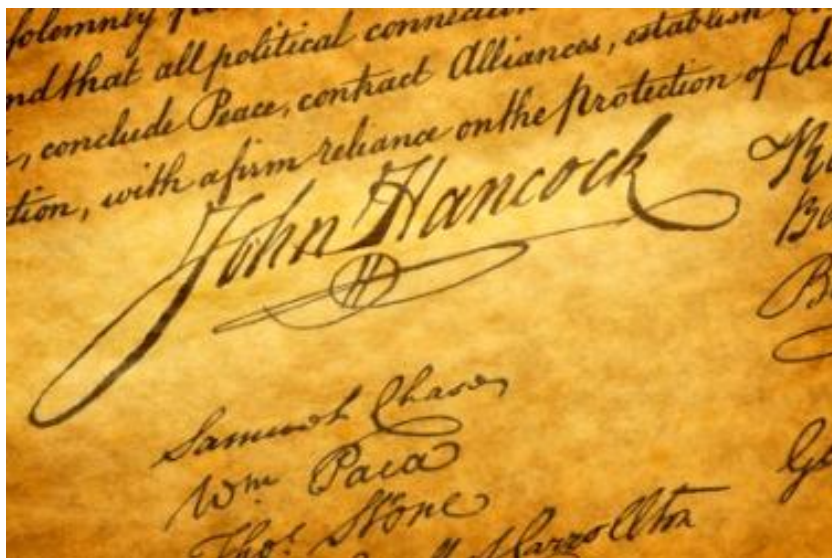 solemnly
nd that all political connection
conclude Peace, contract Alliances, establish
tion, with a firm reliance on the Protection of di
John Hancock
H
Samuel Chase
Wm. Paca
Thos. Stone
Carrollton